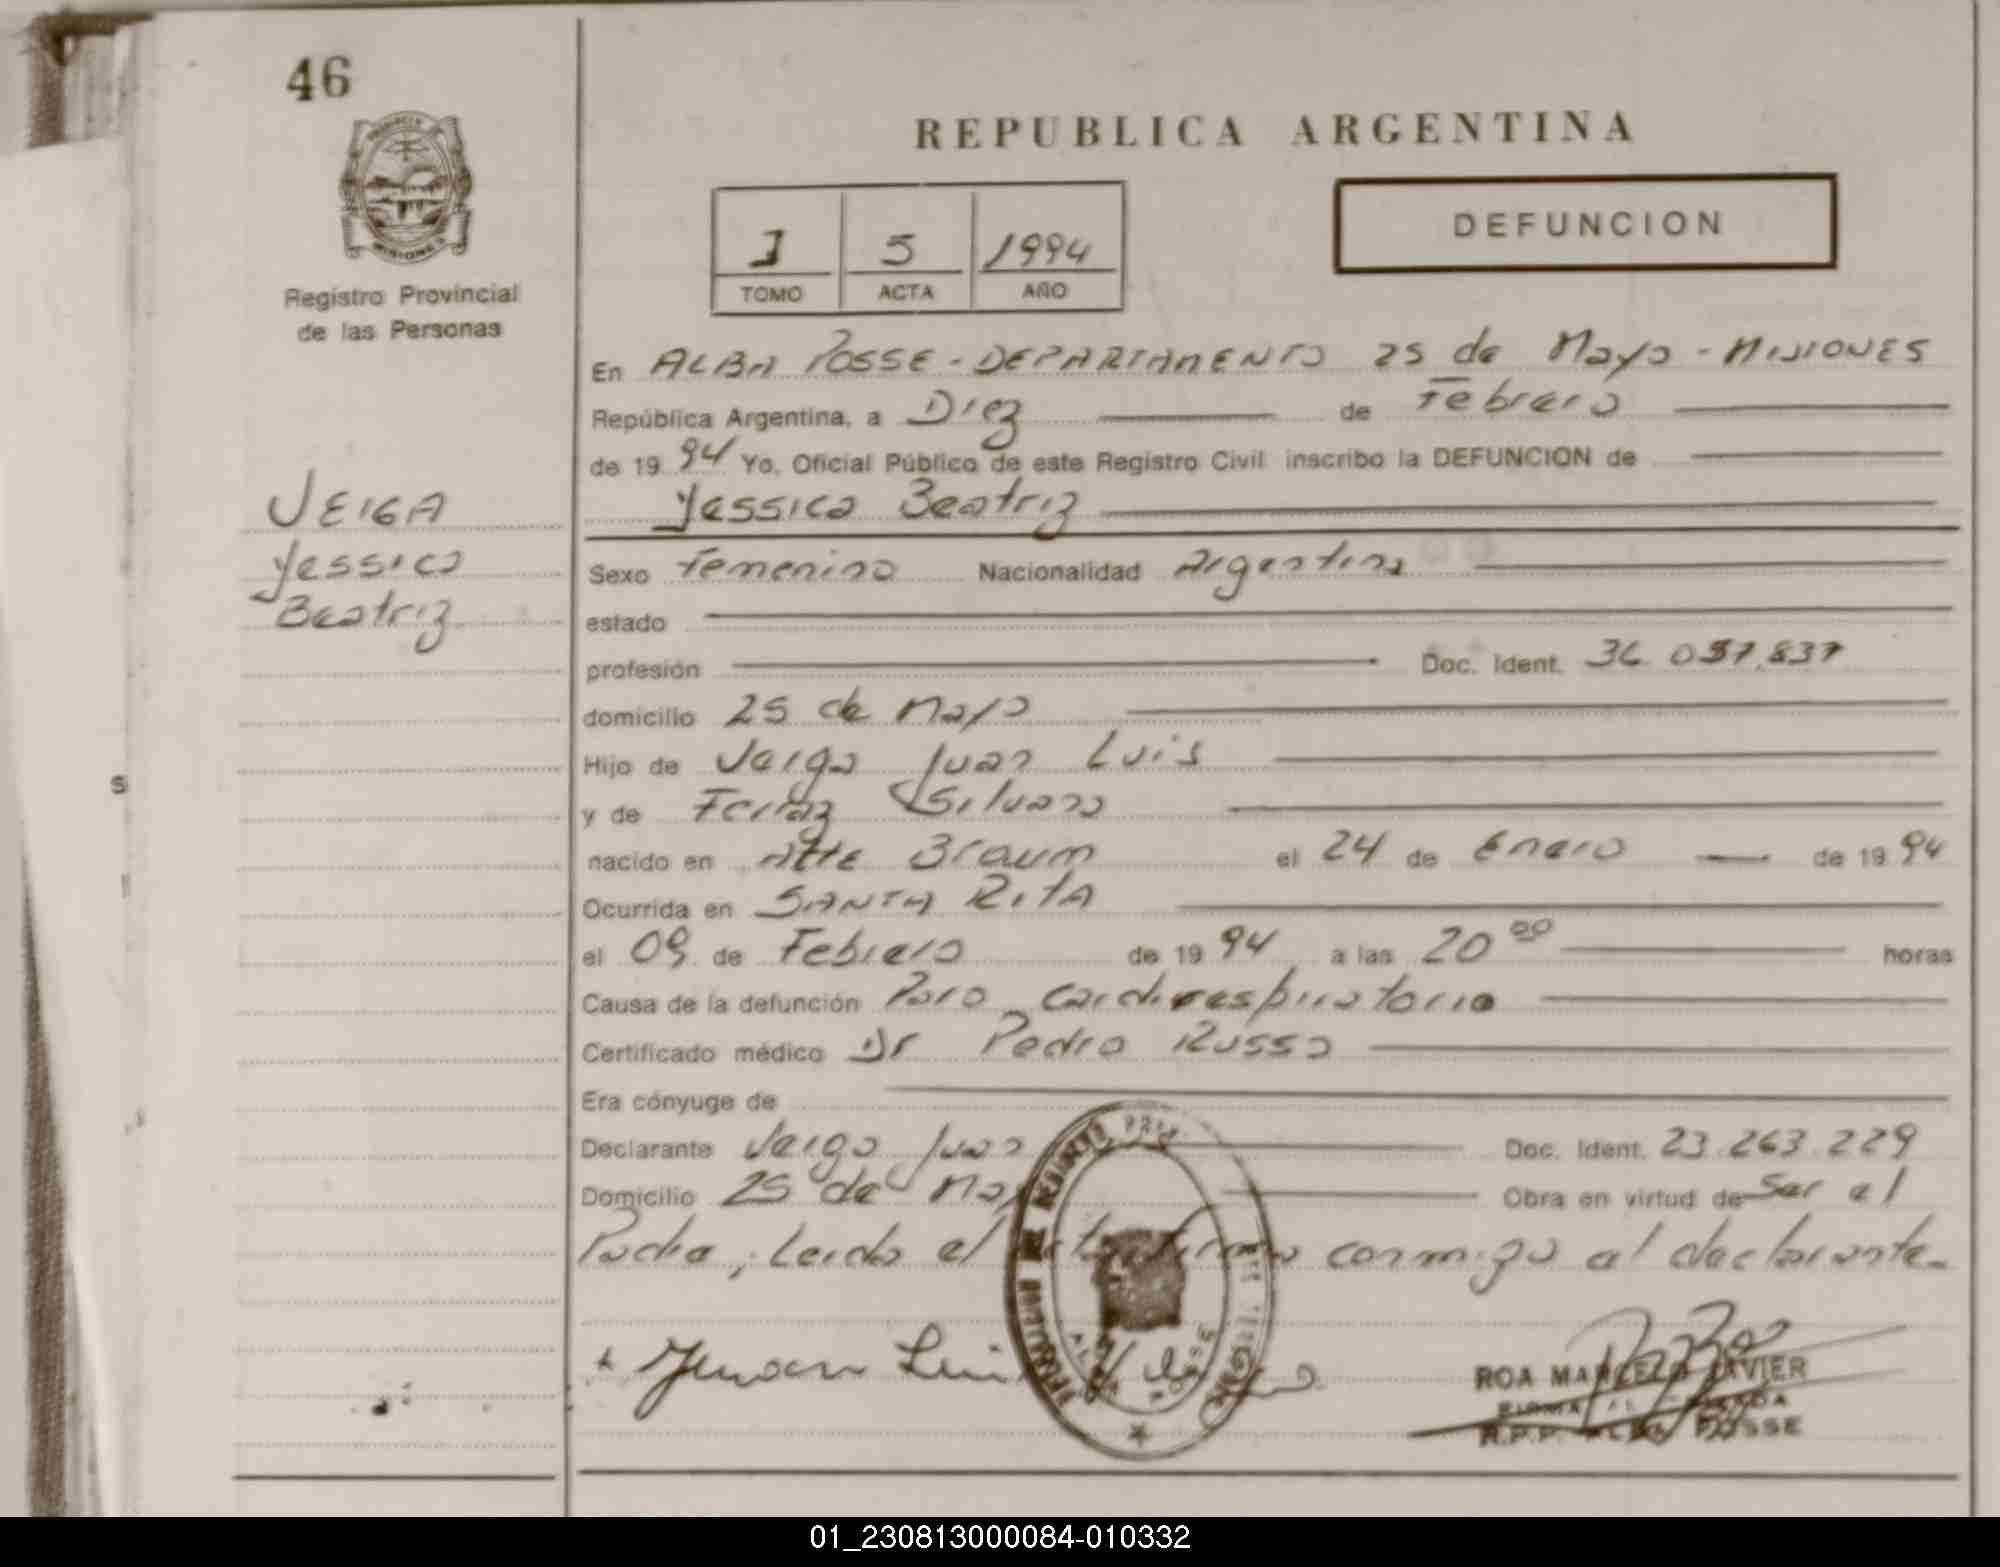 46
REPUBLICA ARGENTINA
PROVINCIA
MISIONES
Registro Provincial
de las Personas
I 5 1994
TOMO ACTA AÑO
DEFUNCION
En ALBA POSSE - DEPARTAMENTO 25 de Mayo - MISIONES
República Argentina, a Diez de Febrero
de 19 94 Yo, Oficial Público de este Registro Civil inscribo la DEFUNCION de
VEIGA
Yessica
Beatriz
Yessica Beatriz
Sexo Femenino Nacionalidad Argentina
estado
profesión Doc. Ident. 36.057.837
domicilio 25 de Mayo
Hijo de Veiga Juan Luis
y de Ferraz Silvana
nacido en Alte Braum el 24 de Enero de 19 94
Ocurrida en SANTA RITA
el 09 de Febrero de 19 94 a las 20 00 horas
Causa de la defunción Paro Cardirespiratorio
Certificado médico Dr Pedro Russo
Era cónyuge de
Declarante Veiga Juan Doc. Ident. 23.263.229
Domicilio 25 de May Obra en virtud de Ser el
Padre, Leida el acta firma conmigo al declarante.
Juan Luis
ROA MARCELO JAVIER
R.P.P. ALBA POSSE
01_230813000084-010332